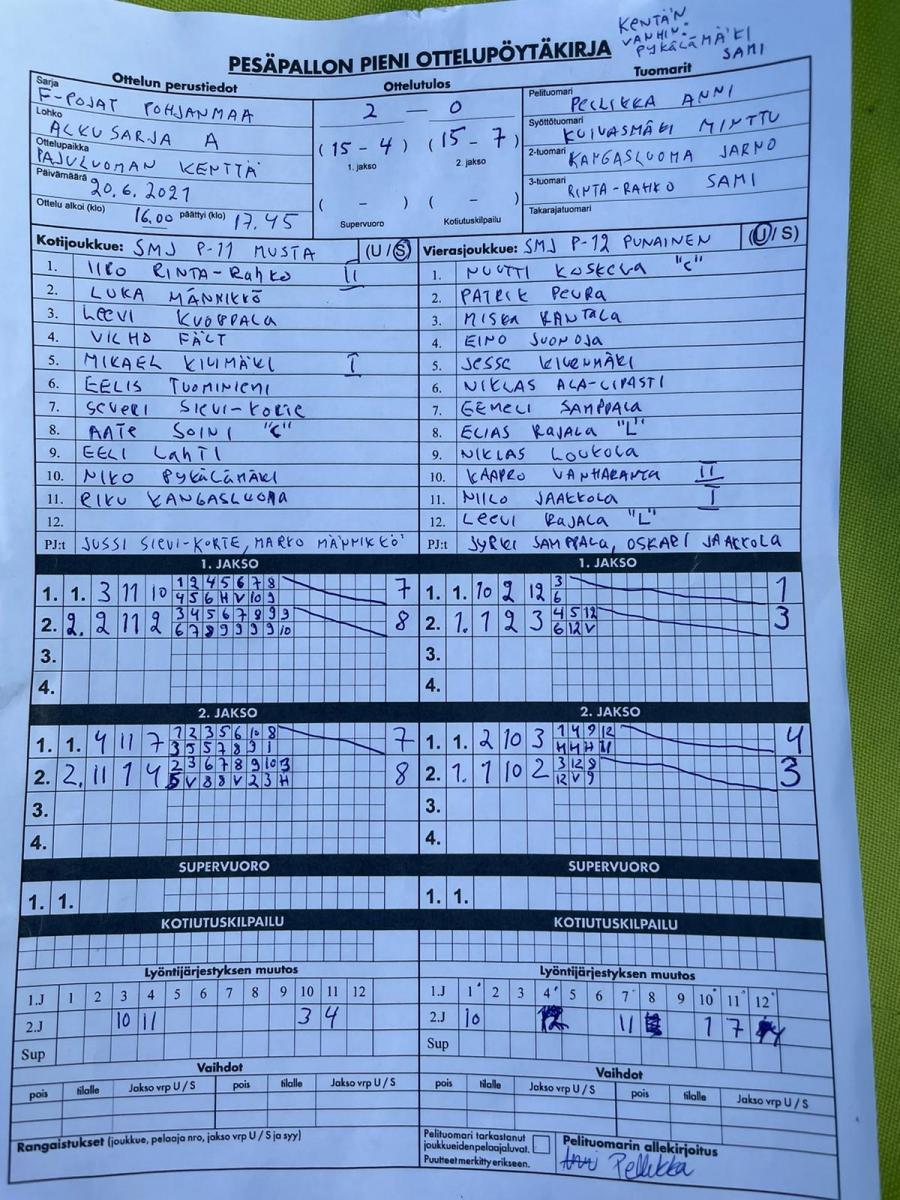 KENTÄN
VANHIN:
PYKÄLÄMÄKI
SAMI
PESÄPALLON PIENI OTTELUPÖYTÄKIRJA
Ottelun perustiedot
Ottelutulos
Tuomarit
Sarja
F-POJAT POHJANMAA
Lohko
ALKUSARJA A
Ottelupaikka
PAJULUOMAN KENTTÄ
Päivämäärä
20.6.2021
Ottelu alkoi (klo) 16.00 päättyi (klo) 17.45
2 – 0
(15 - 4) (15 - 7)
1. jakso 2. jakso
( - ) ( - )
Supervuoro Kotiutuskilpailu
Pelituomari
PELLIKKA ANNI
Syöttötuomari
KUIVASMÄKI MINTTU
2-tuomari
KANGASLUOMA JARNO
3-tuomari
RINTA-RAHKO SAMI
Takarajatuomari
Kotijoukkue: SMJ P-11 MUSTA (U/S)
1. IIRO RINTA-RAHKO II
2. LUKA MÄNNIKKÖ
3. LEEVI KUOPPALA
4. VILHO FÄLT
5. MIKAEL KILIMÄKI I
6. EELIS TUOMINIEMI
7. SEVERI SIEVI-KORTE
8. AATE SOINI "C"
9. EELI LAHTI
10. NIKO PYKÄLÄMÄKI
11. RIKU KANGASLUOMA
12.
PJ:t JUSSI SIEVI-KORTE, MARKO MÄNNIKKÖ
Vierasjoukkue: SMJ P-12 PUNAINEN (U/S)
1. NUUTTI KOSKELA "C"
2. PATRIK PEURA
3. MISKA RANTALA
4. EINO JUONOJA
5. JESSE KIVENMÄKI
6. NIKLAS ALA-LIPASTI
7. EEMELI SAMPPALA
8. ELIAS RAJALA "L"
9. NIKLAS LOUKOLA
10. KAAPRO VANHARANTA II
11. NIILO JAAKKOLA I
12. LEEVI RAJALA "L"
PJ:t JYRKI SAMPPALA, OSKARI JAAKKOLA
1. JAKSO
1. 1. 3 11 10 1 2 4 5 6 7 8 7
4 5 6 H V 10 9
2. 2. 2 11 2 3 4 5 6 7 8 9 9 8
6 7 8 9 9 9 9 10
3.
4.
1. JAKSO
1. 1. 10 2 12 3 1
6
2. 1. 1 2 3 4 5 12 3
6 12 V
3.
4.
2. JAKSO
1. 1. 4 11 7 1 2 3 5 6 10 8 7
3 5 5 7 8 9 1
2. 2. 11 1 4 2 3 6 7 8 9 10 3 8
5 V 8 8 V 2 3 H
3.
4.
2. JAKSO
1. 1. 2 10 3 1 4 9 12 4
H H H 11
2. 1. 1 10 2 3 12 8 3
12 V 9
3.
4.
SUPERVUORO
1. 1.
SUPERVUORO
1. 1.
KOTIUTUSKILPAILU
KOTIUTUSKILPAILU
Lyöntijärjestyksen muutos
1.J 1 2 3 4 5 6 7 8 9 10 11 12
2.J 10 11 3 4
Sup
Lyöntijärjestyksen muutos
1.J 1 2 3 4 5 6 7 8 9 10 11 12
2.J 10 12 11 1 7 4
Sup
Vaihdot
pois tilalle Jakso vrp U / S pois tilalle Jakso vrp U / S
Vaihdot
pois tilalle Jakso vrp U / S pois tilalle Jakso vrp U / S
Rangaistukset (joukkue, pelaaja nro, jakso vrp U / S ja syy)
Pelituomari tarkastanut
joukkueiden pelaajaluvat.
Puutteet merkitty erikseen.
Pelituomarin allekirjoitus
Anni Pellikka